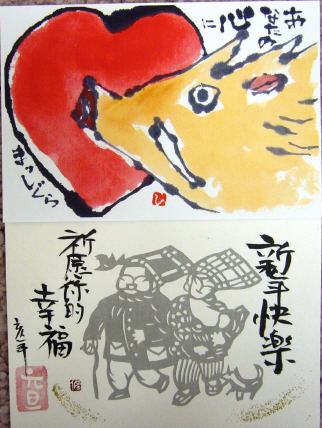 あなたの
心に
まっしぐら
新年快樂
祈愿你的
幸福
亥年
元旦